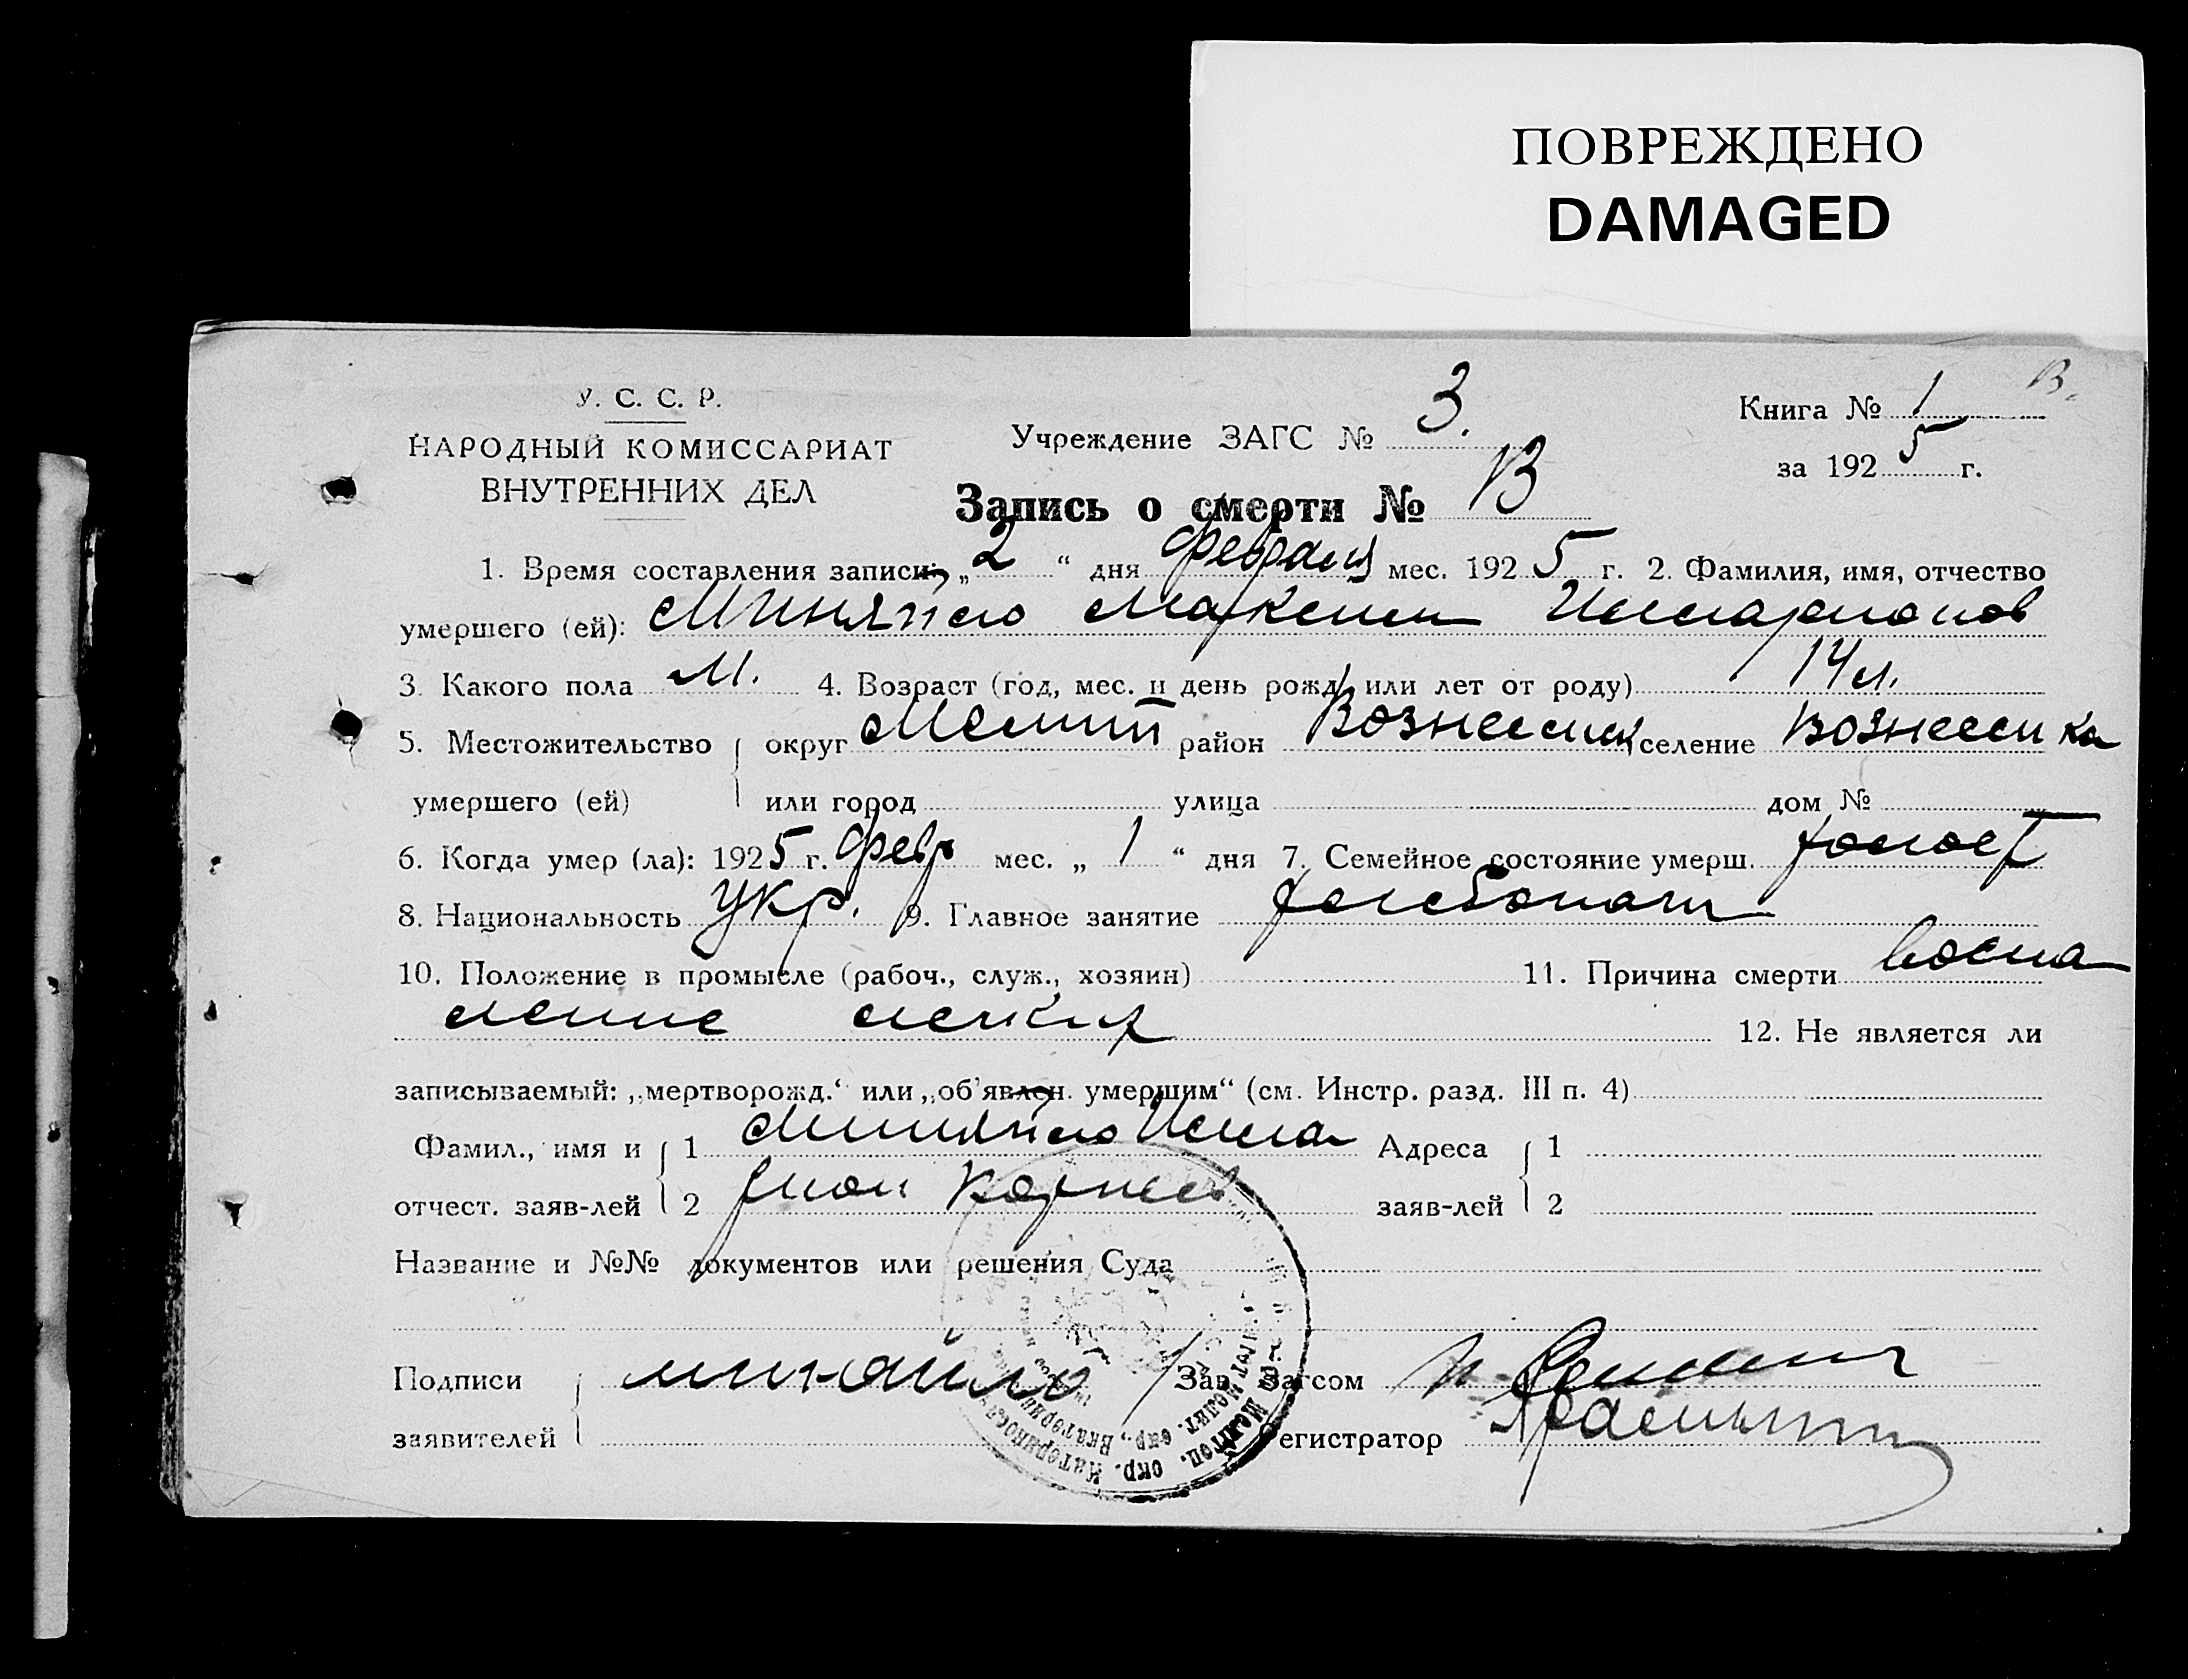 ПОВРЕЖДЕНО
DAMAGED
У. С. С. Р.
НАРОДНЫЙ КОМИССАРИАТ
ВНУТРЕННИХ ДЕЛ
Учреждение ЗАГС № 3.
Книга № 1
В.
за 1925 г.
Запись о смерти № 13
1. Время составления записи: „2“ дня февраля мес. 1925 г. 2. Фамилия, имя, отчество
умершего (ей): Миняйло Максим Илларионов
3. Какого пола М. 4. Возраст (год, мес. и день рожд. или лет от роду) 14 л.
5. Местожительство округ Мелит район Вознесенск селение Вознесенка
умершего (ей) или город улица дом №
6. Когда умер (ла): 1925 г. февр мес. „1“ дня 7. Семейное состояние умерш. холост
8. Национальность укр. 9. Главное занятие хлебопаш
10. Положение в промысле (рабоч., служ., хозяин) 11. Причина смерти воспа
ление легких
12. Не является ли
записываемый: „мертворожд.“ или „об'явлен. умершим“ (см. Инстр. разд. III п. 4)
Фамил., имя и 1 Миняйло Илла Адреса 1
отчест. заяв-лей 2 рион Корнеев заяв-лей 2
Название и №№ документов или решения Суда
Подписи миняйло Зав. Загсом
заявителей Регистратор